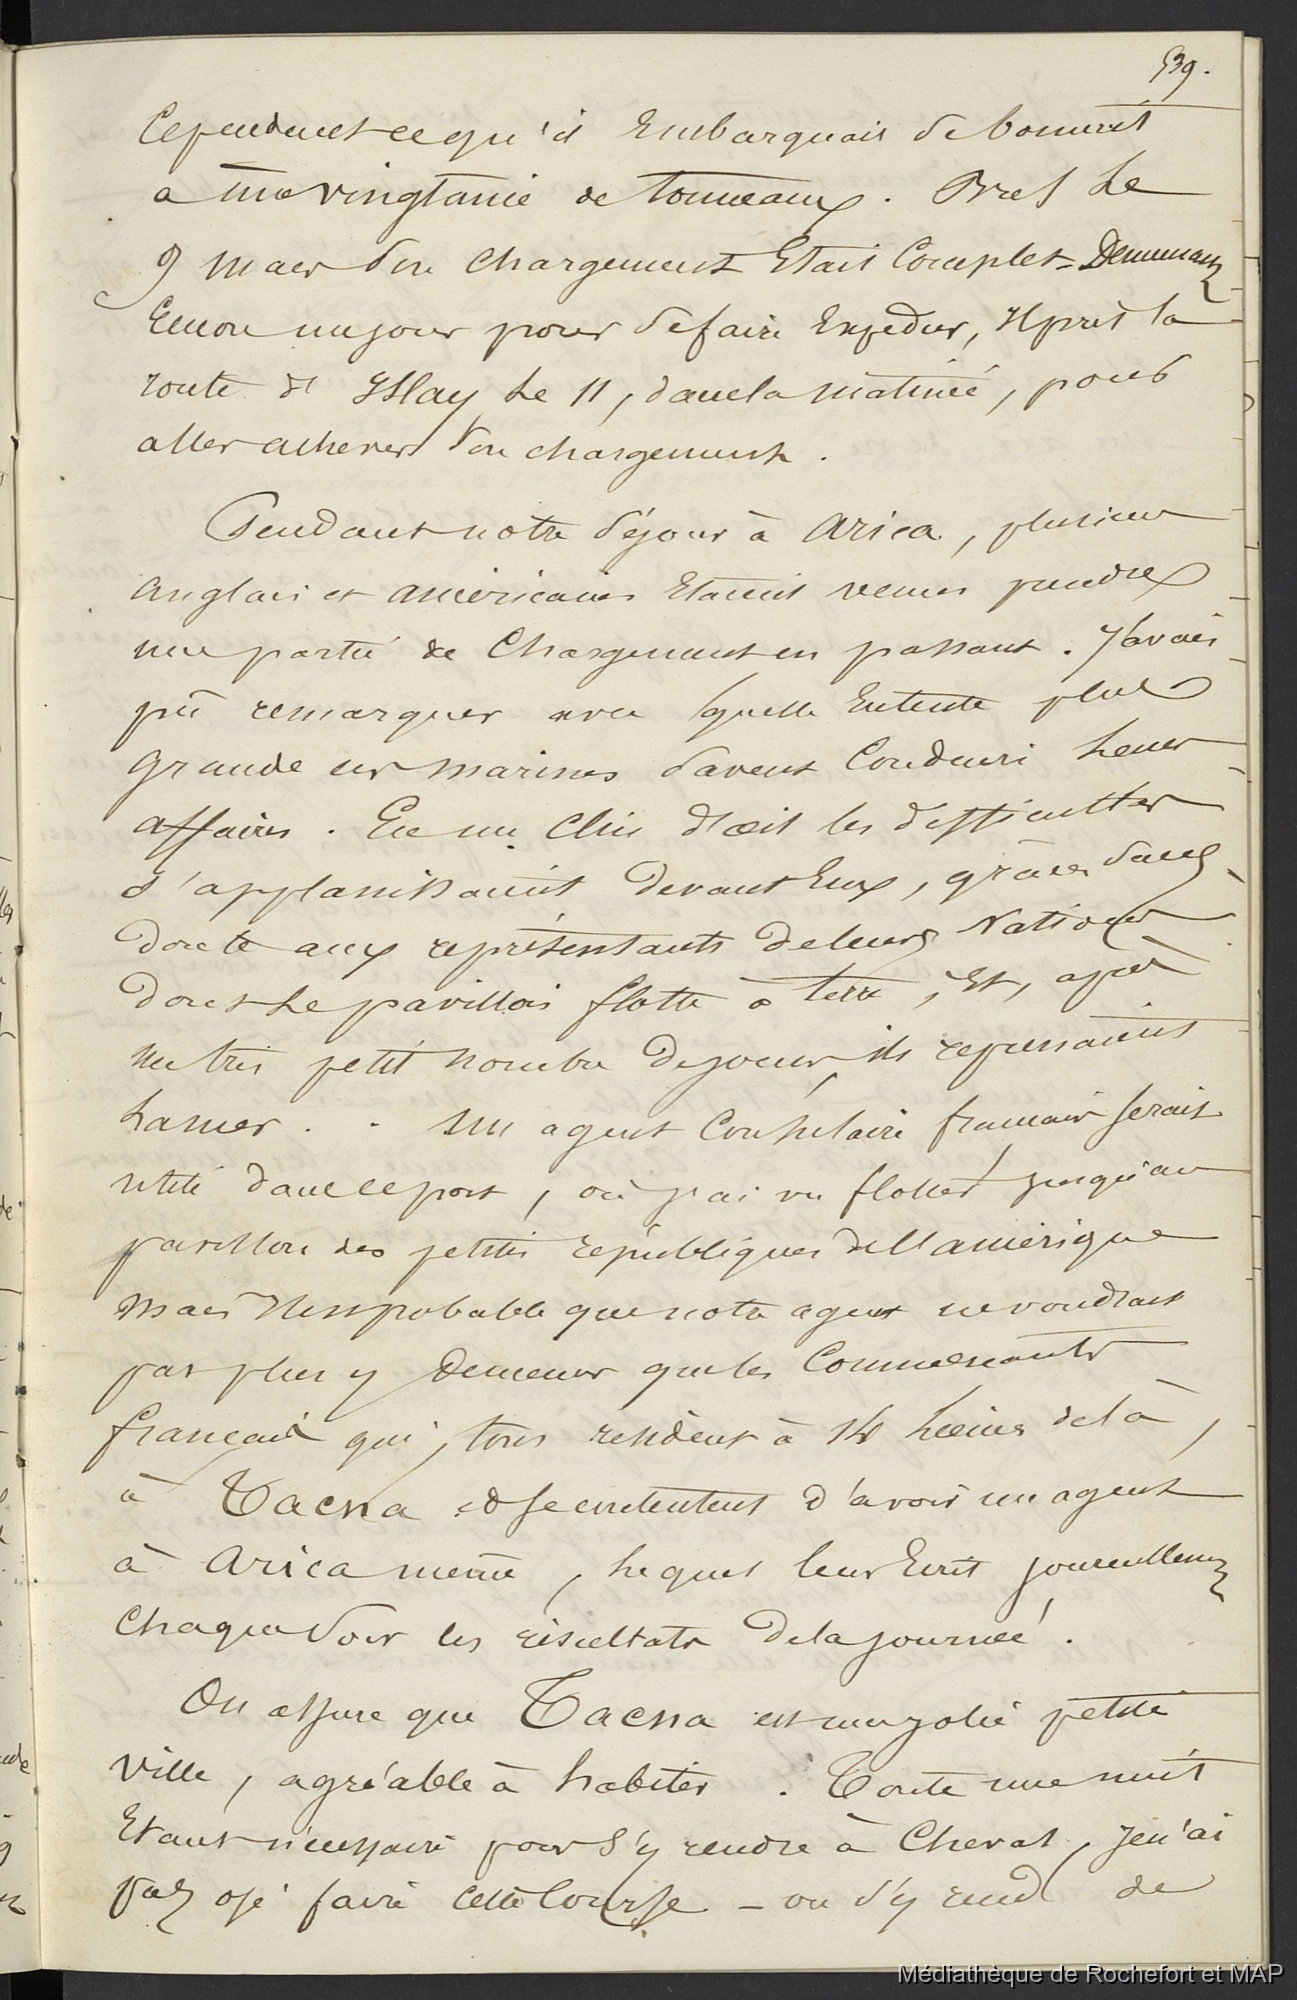 539.
Cependant ce qu'il Embarquait se bornait
a une vingtaine de tonneaux. Bref le
9 mars son chargement Etait Complet - Demeurant
Encore un jour pour se faire Expedier, Il prit la
route d' Islay le 11, dans la matinée, pour
aller achever son chargement.
Pendant notre séjour à Arica, plusieurs
anglais et américains Etaient venus prendre
une partie de Chargement en passant. J'avais
pû remarquer avec quelle Entente plus
grande ces marines savent Conduire leurs
affaires. En un Clin d'œil les difficultes
s'applanissaient devant Eux, grâces sans
doute aux représentants de leurs Nations
dont le pavillon flotte à terre, Et, après
un très petit nombre de jours, ils reprenaient
la mer. . un agent Consulaire français serait
utile dans ce port, où j'ai vu flotter jusqu'au
pavillon des petites républiques de l'amérique
mais Il est probable que notre agent ne voudrait
pas plus y demeurer que les Commerçants
français qui, tous resident à 14 lieues de là,
à Tacna et se contentent d'avoir un agent
à Arica meme, lequel leur Ecrit journellement
chaque soir les résultats de la journée.
On assure que Tacna est une jolie petite
ville, agréable à habiter. Toute une nuit
Etant nécessaire pour s'y rendre à Cheval, je n'ai
pas osé faire cette Course - on s'y rend de
Médiathèque de Rochefort et MAP